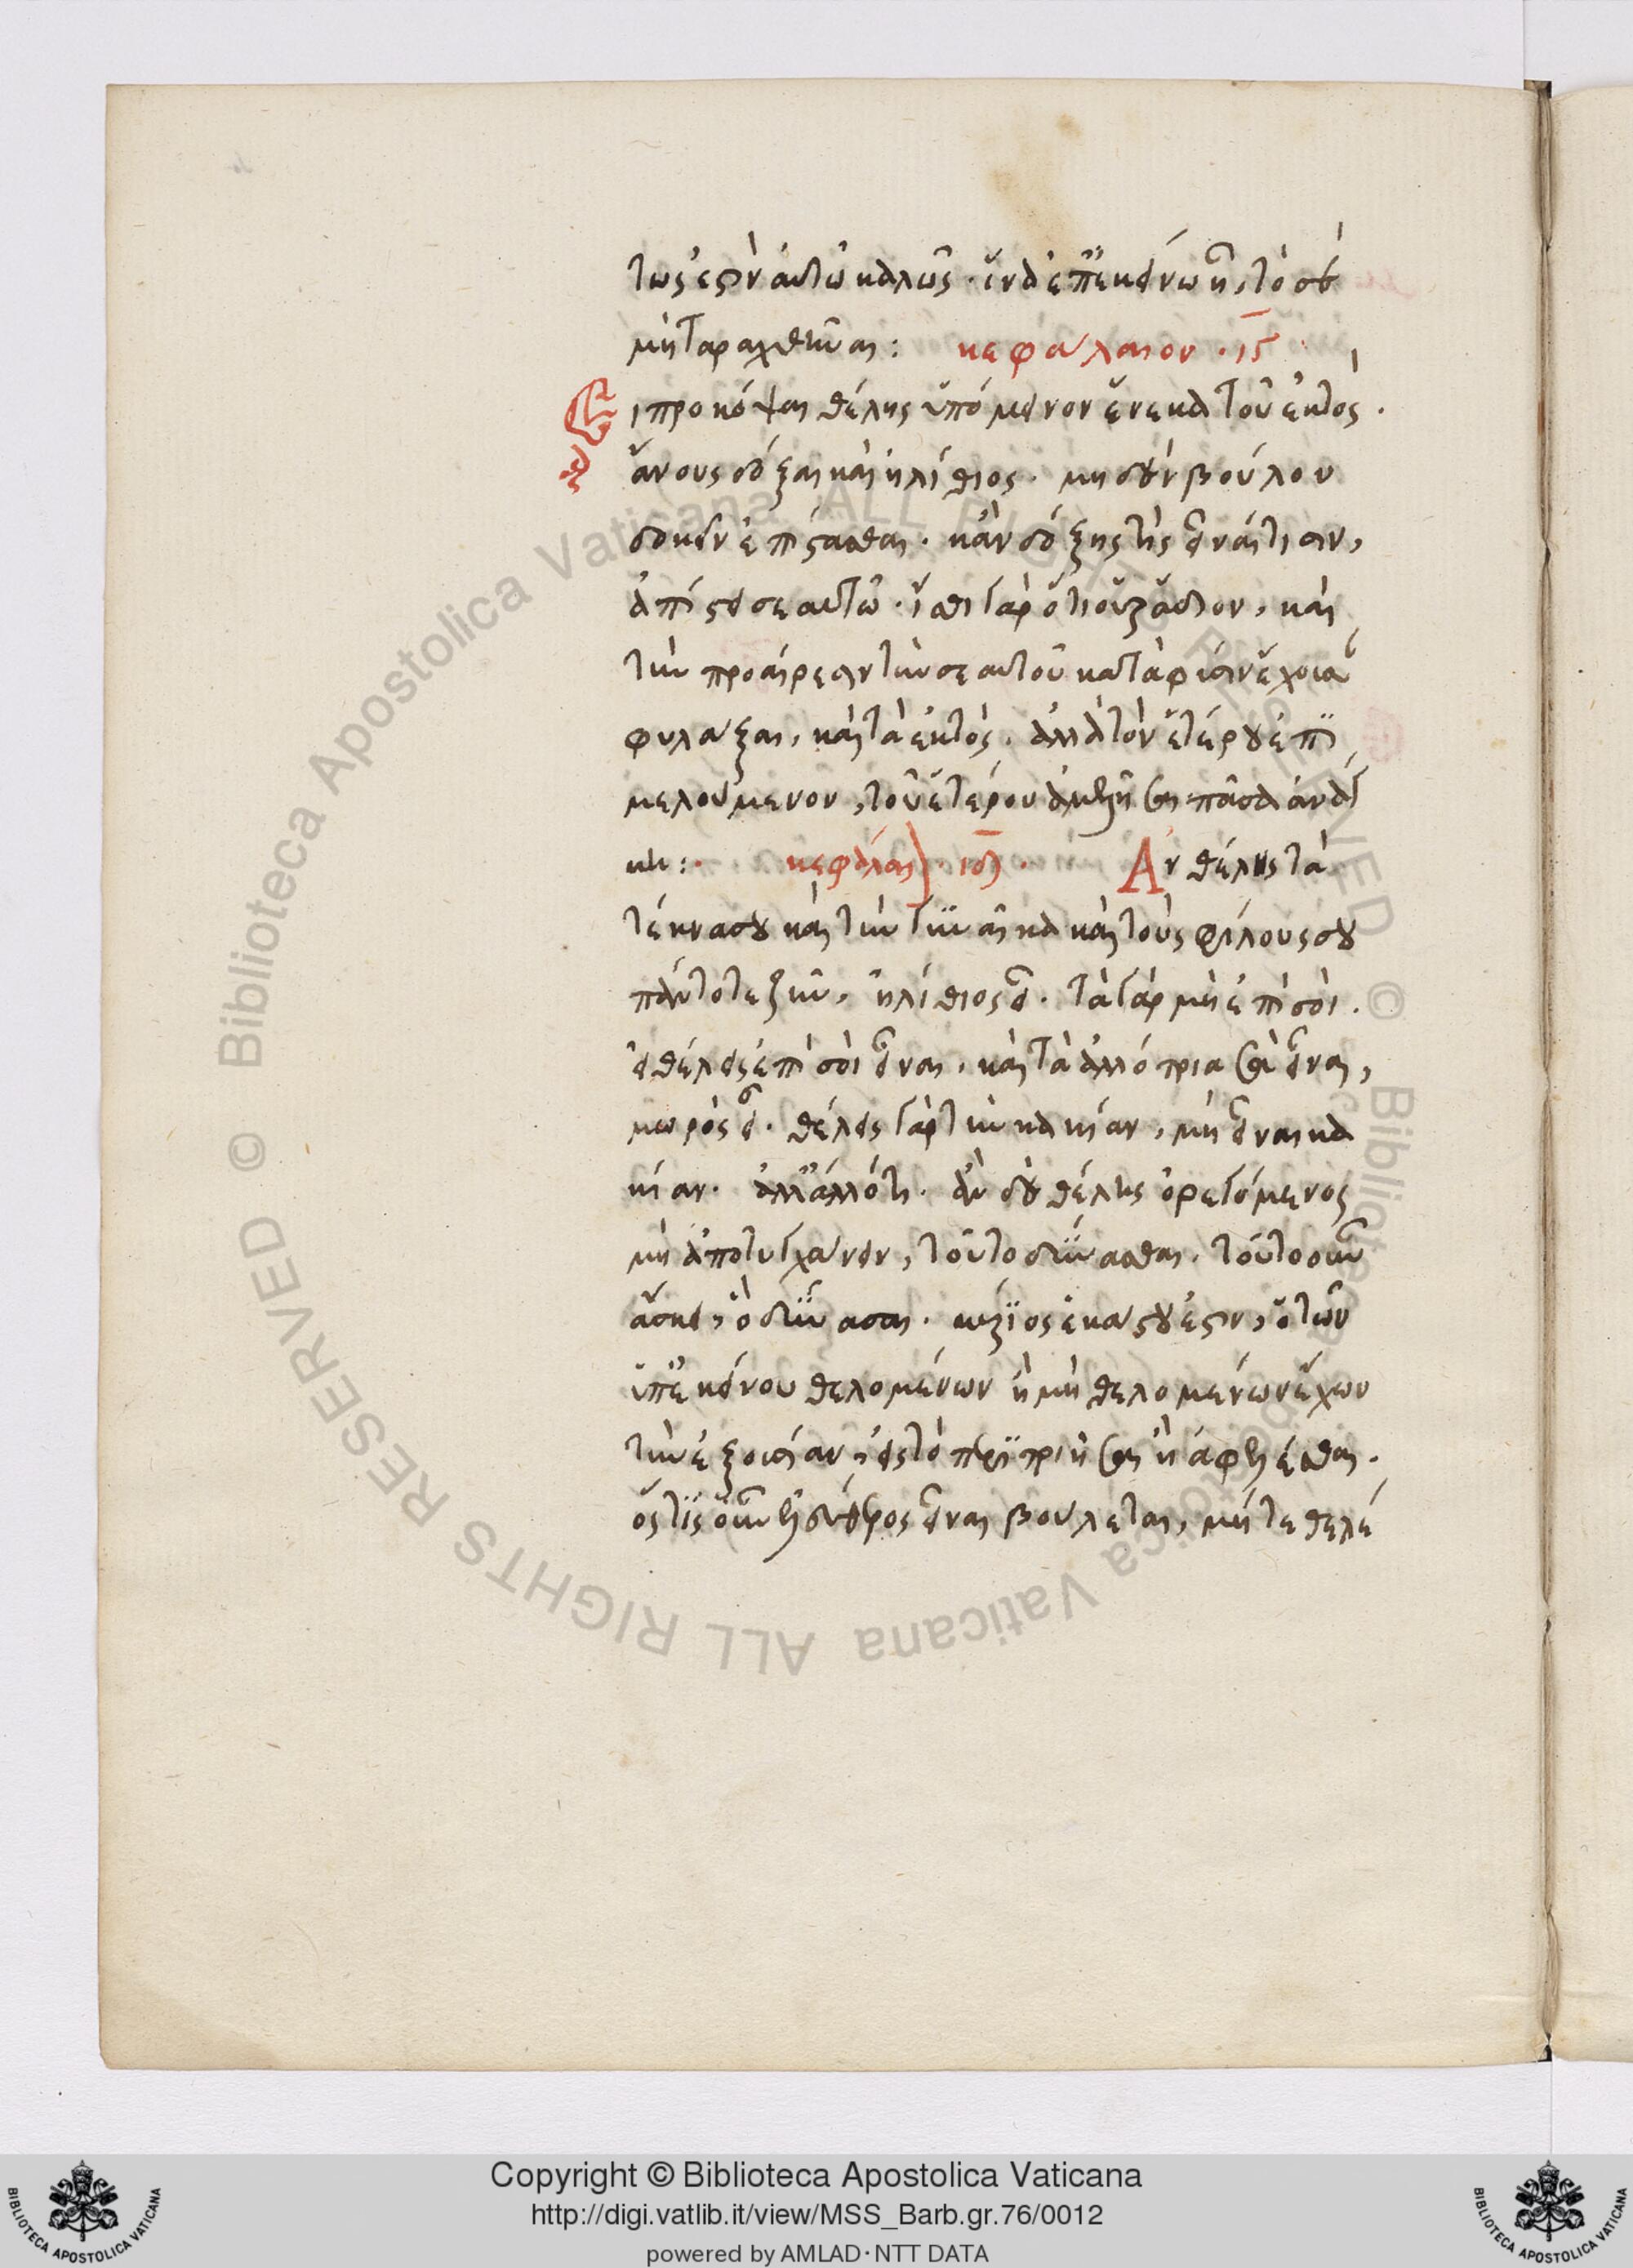 τως ἐστὶν αὐτῷ καλῶς· ἵνα ἐπ' ἐκείνῳ ᾖ, τὸ σὲ
μὴ ταραχθῆναι: κεφάλαιον · ιγ
Εἰ προκόψαι θέλῃς ὑπόμεινον ἕνεκα τοῦ ἐκτὸς·
ἄνους δόξαι καὶ ἠλίθιος· μηδὲν βούλου
δοκεῖν ἐπίστασθαι· κἂν δόξῃς τις εἶναί τισιν,
ἀπίστει σεαυτῷ· ἴσθι γὰρ ὅτι οὐ ῥᾴδιον, καὶ
τὴν προαίρεσιν τὴν σεαυτοῦ κατὰ φύσιν ἔχουσαν
φυλάξαι, καὶ τὰ ἐκτὸς· ἀλλὰ τὸν ἑτέρου ἐπι
μελούμενον, τοῦ ἑτέρου ἀμελῆσαι πᾶσα ἀνάγ
κη:· κεφάλαι · ιδ · Ἂν θέλῃς τὰ
τέκνα σου καὶ τὴν γυναῖκα καὶ τοὺς φίλους σου
πάντοτε ζῆν, ἠλίθιος εἶ· τὰ γὰρ μὴ ἐπὶ σοὶ·
θέλεις ἐπὶ σοὶ εἶναι, καὶ τὰ ἀλλότρια σὰ εἶναι,
μωρὸς εἶ· θέλεις γὰρ τὴν κακίαν, μὴ εἶναι κα
κίαν· ἀλλ' ἄλλό τι· ἂν δὲ θέλῃς ὀρεγόμενος
μὴ ἀποτυγχάνειν, τοῦτο δύνασαι· τοῦτο οὖν
ἄσκει, ὃ δύνασαι· κύριος ἑκάστου ἐστὶν, ὁ τῶν
ὑπ' ἐκείνου θελομένων ἢ μὴ θελομένων ἔχων
τὴν ἐξουσίαν, εἰς τὸ περιποιῆσαι ἢ ἀφελέσθαι·
ὅς τις οὖν ἐλεύθερος εἶναι βούλεται, μήτε θελέ
Copyright © Biblioteca Apostolica Vaticana
http://digi.vatlib.it/view/MSS_Barb.gr.76/0012
powered by AMLAD·NTT DATA